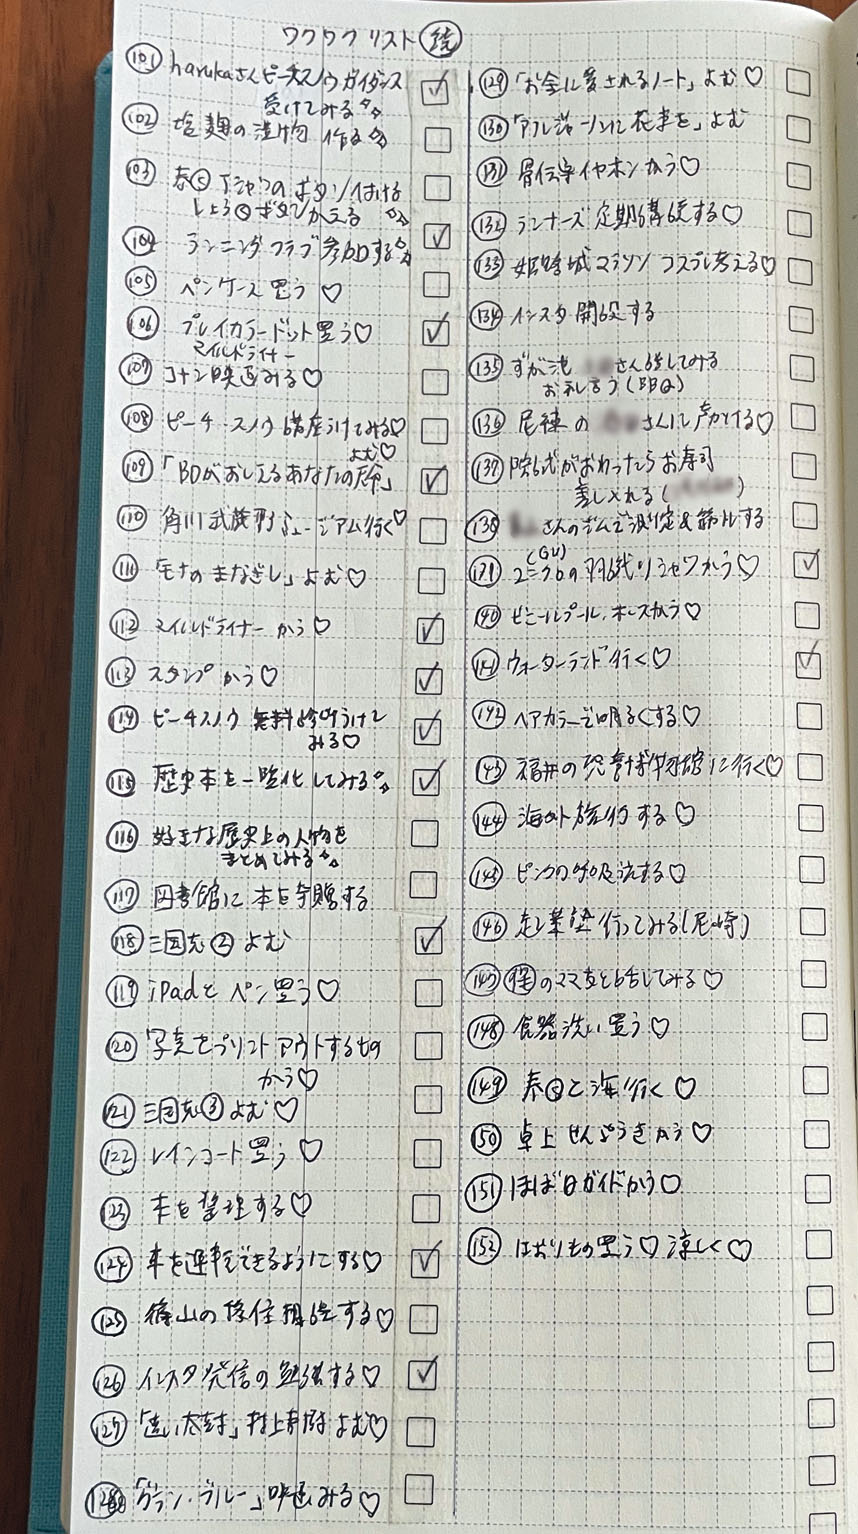 ワクワクリスト 続
101 harukaさんピーチスノウガイダンス
受けてみる☆☆
102 塩麹の漬物 作る☆
103 Tシャツのボタン付ける
かえる ☆☆
104 ランニングクラブ参加する☆☆
105 ペンケース買う♡
106 プレイカラードット買う♡
マイルドライナー
107 コナン映画みる♡
108 ピーチ・スノウ講座うけてみる♡
よむ♡
109 「BDがおしえるあなたの 」
110 角川武蔵野ミュージアム行く♡
111 「 のまなざし」よむ♡
112 マイルドライナーかう♡
113 スタンプかう♡
114 ピーチスノウ 無料 うけて
みる♡
115 歴史本を一覧化してみる☆☆
116 好きな歴史上の人物を
まとめてみる☆☆
117 図書館に本を寄贈する
118 三国志②よむ
119 iPadとペン買う♡
120 写真をプリントアウトするもの
かう♡
121 三国志③よむ♡
122 レインコート買う♡
123 本を整理する♡
124 車を運転できるようにする♡
125 篠山の移住相談する♡
126 インスタ発信の勉強する♡
127 「遠い太鼓」村上春樹よむ♡
128 「グラン・ブルー」映画みる♡
129 「お金に愛されるノート」よむ♡
130 「アルジャーノンに花束を」よむ
131 骨伝導イヤホンかう♡
132 ランナーズ定期購読する♡
133 姫路城マラソン コスプレ考える♡
134 インスタ開設する
135 ずが池 さん話してみる
お礼言う( )
136 尼練の さんに声かける♡
137 がおわったらお寿司
差し入れる( )
138 さんのジムで測定&筋トレする
139 (GU)
ユニクロの羽織りシャツかう♡
140 ビニールプール.ホースかう♡
141 ウォーターランド行く♡
142 ヘアカラーで明るくする♡
143 福井の恐竜博物館に行く♡
144 海外旅行する♡
145 ピンクの呼吸法する♡
146 走ってみる(尼崎)
147 のママ友と話してみる♡
148 食器洗い買う♡
149 と海行く♡
150 卓上せんぷうきかう♡
151 ほぼ日ガイドかう♡
152 はおりもの買う♡涼しく♡